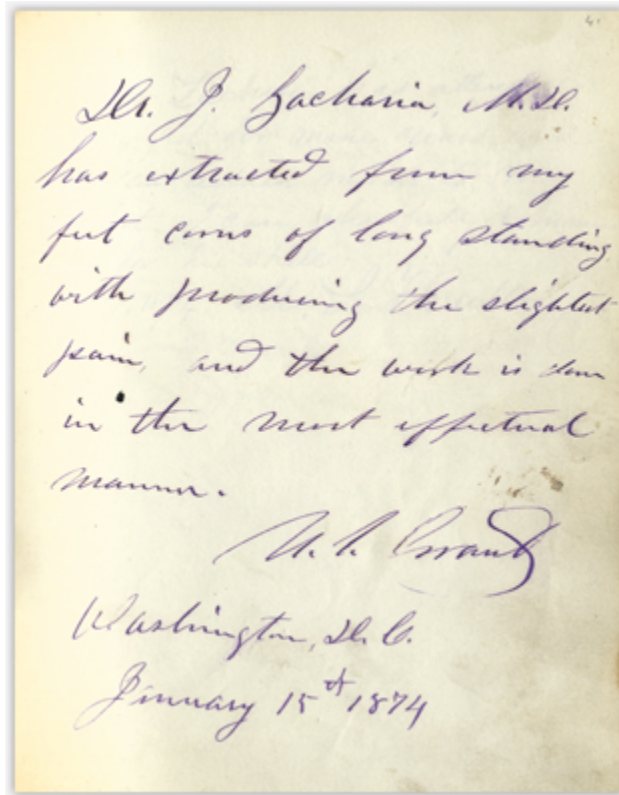 Dr. J. Zacharia, M.D.
has extracted from my
feet corns of long standing
with producing the slightest
pain, and the work is done
in the most effectual
manner.
U. S. Grant
Washington, D. C.
January 15th 1874